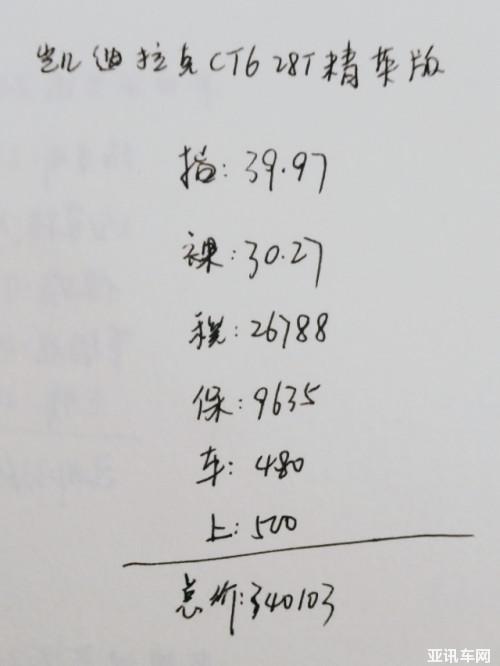 凯迪拉克CT6 28T精英版
指: 39.97
裸: 30.27
税: 26788
保: 9635
车: 480
上: 500
总价: 340103
亚讯车网